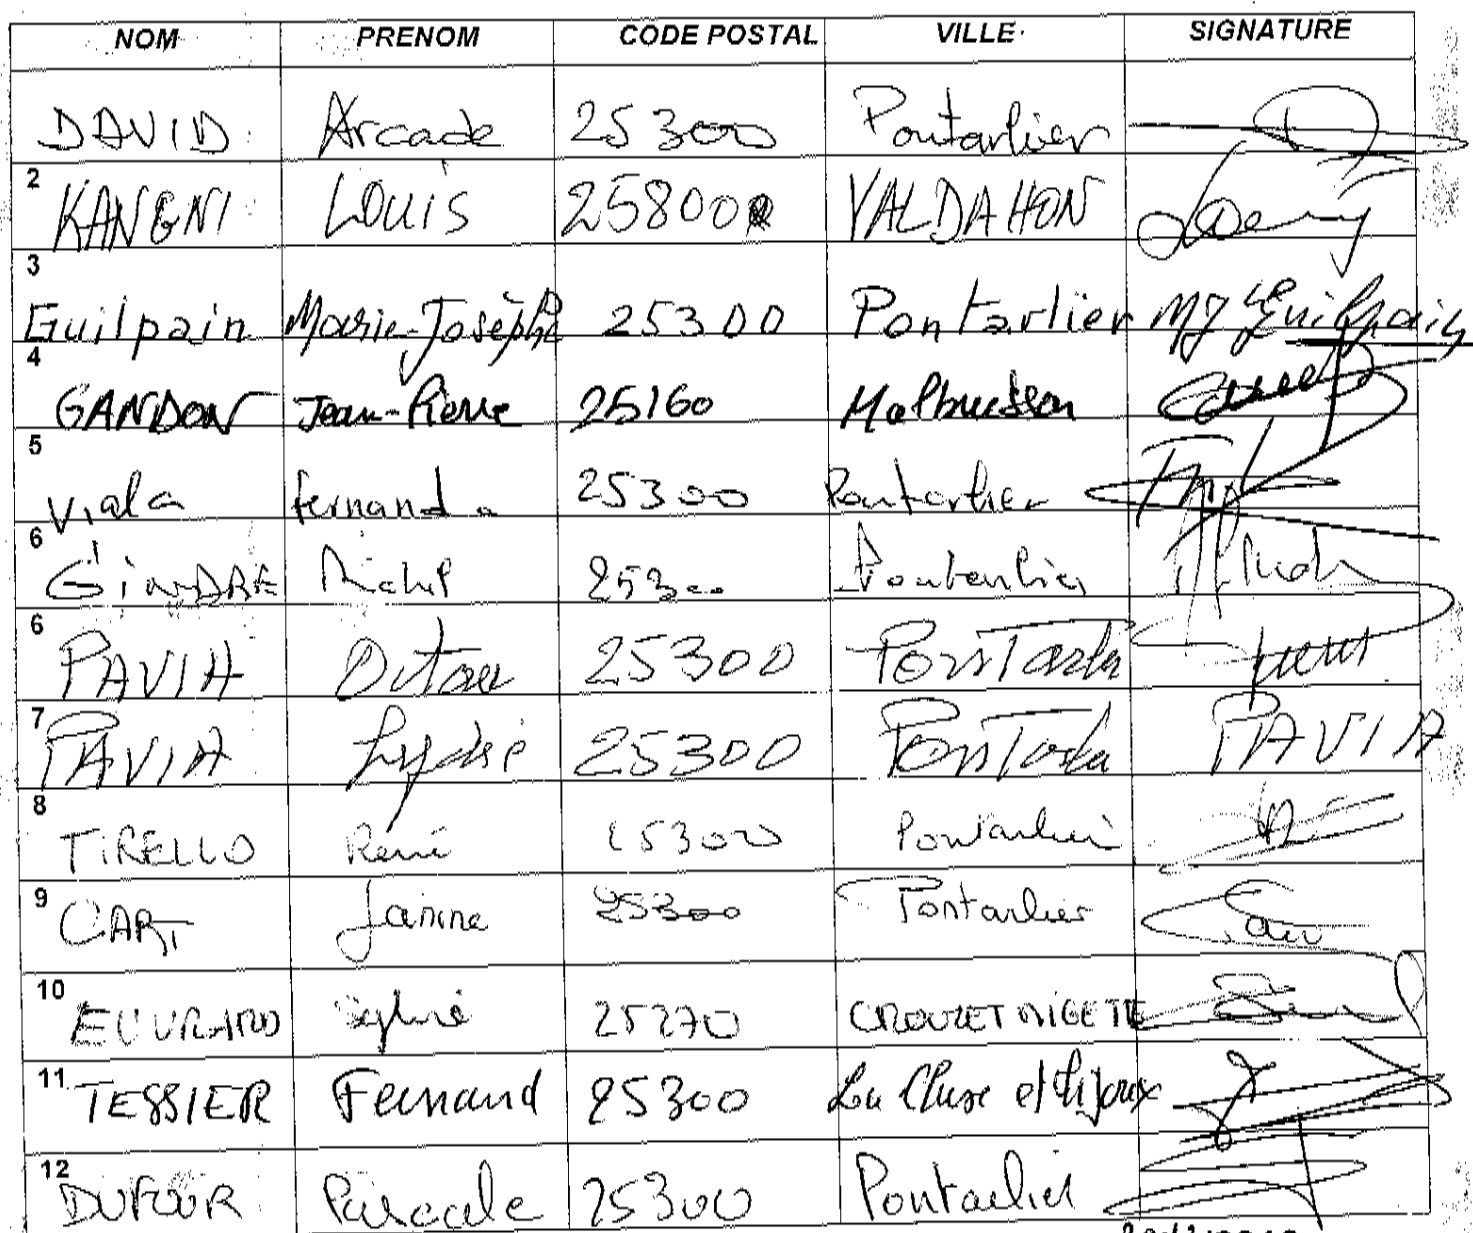 NOM PRENOM CODE POSTAL VILLE SIGNATURE
DAVID Arcade 25300 Pontarlier
2 KANGNI LOUIS 25800 VALDAHON
3 Guilpain Marie-Josèphe 25300 Pontarlier MJ Guilpain
4 GANDON Jean-Pierre 25160 Malbuisson
5 Viala fernanda 25300 Pontarlier
6 Michel 25300 Pontarlier
6 PAVIA 25300 Pontarlier
7 PAVIA Lydie 25300 Pontarlier PAVIA
8 TIRELLO René 25300 Pontarlier
9 CART Janine 25300 Pontarlier
10 EUVRARD Sylvie 25270 CROUZET MIGETTE
11 TESSIER Fernand 25300 La Cluse et Mijoux
12 DUFOUR Pascale 25300 Pontarlier